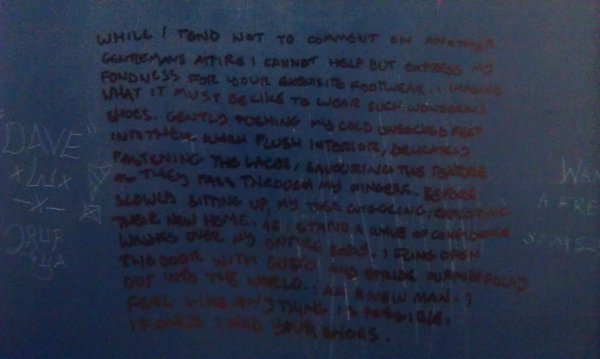 WHILE I TEND NOT TO COMMENT ON ANOTHER
GENTLEMANS ATTIRE I CANNOT HELP BUT EXPRESS MY
FONDNESS FOR YOUR EXQUISITE FOOTWEAR. I IMAGINE
WHAT IT MUST BE LIKE TO WEAR SUCH WONDEROUS
SHOES. GENTLY PUSHING MY COLD UNSOCKED FEET
INTO THEIR WARM PLUSH INTERIOR, DELICATELY
FASTENING THE LACES, SAVOURING THE TEXTURE
AS THEY PASS THROUGH MY FINGERS. BEFORE
SLOWLY SITTING UP, MY TOES WIGGLING, EXPLORING
THEIR NEW HOME. AS I STAND A WAVE OF CONFIDENCE
WASHES OVER MY ENTIRE BODY. I FLING OPEN
THE DOOR WITH GUSTO AND STRIDE PURPOSEFULLY
OUT INTO THE WORLD. I AM A NEW MAN. I
FEEL LIKE ANYTHING IS POSSIBLE.
IF ONLY I HAD YOUR SHOES.
"DAVE"
WAN
A FRE